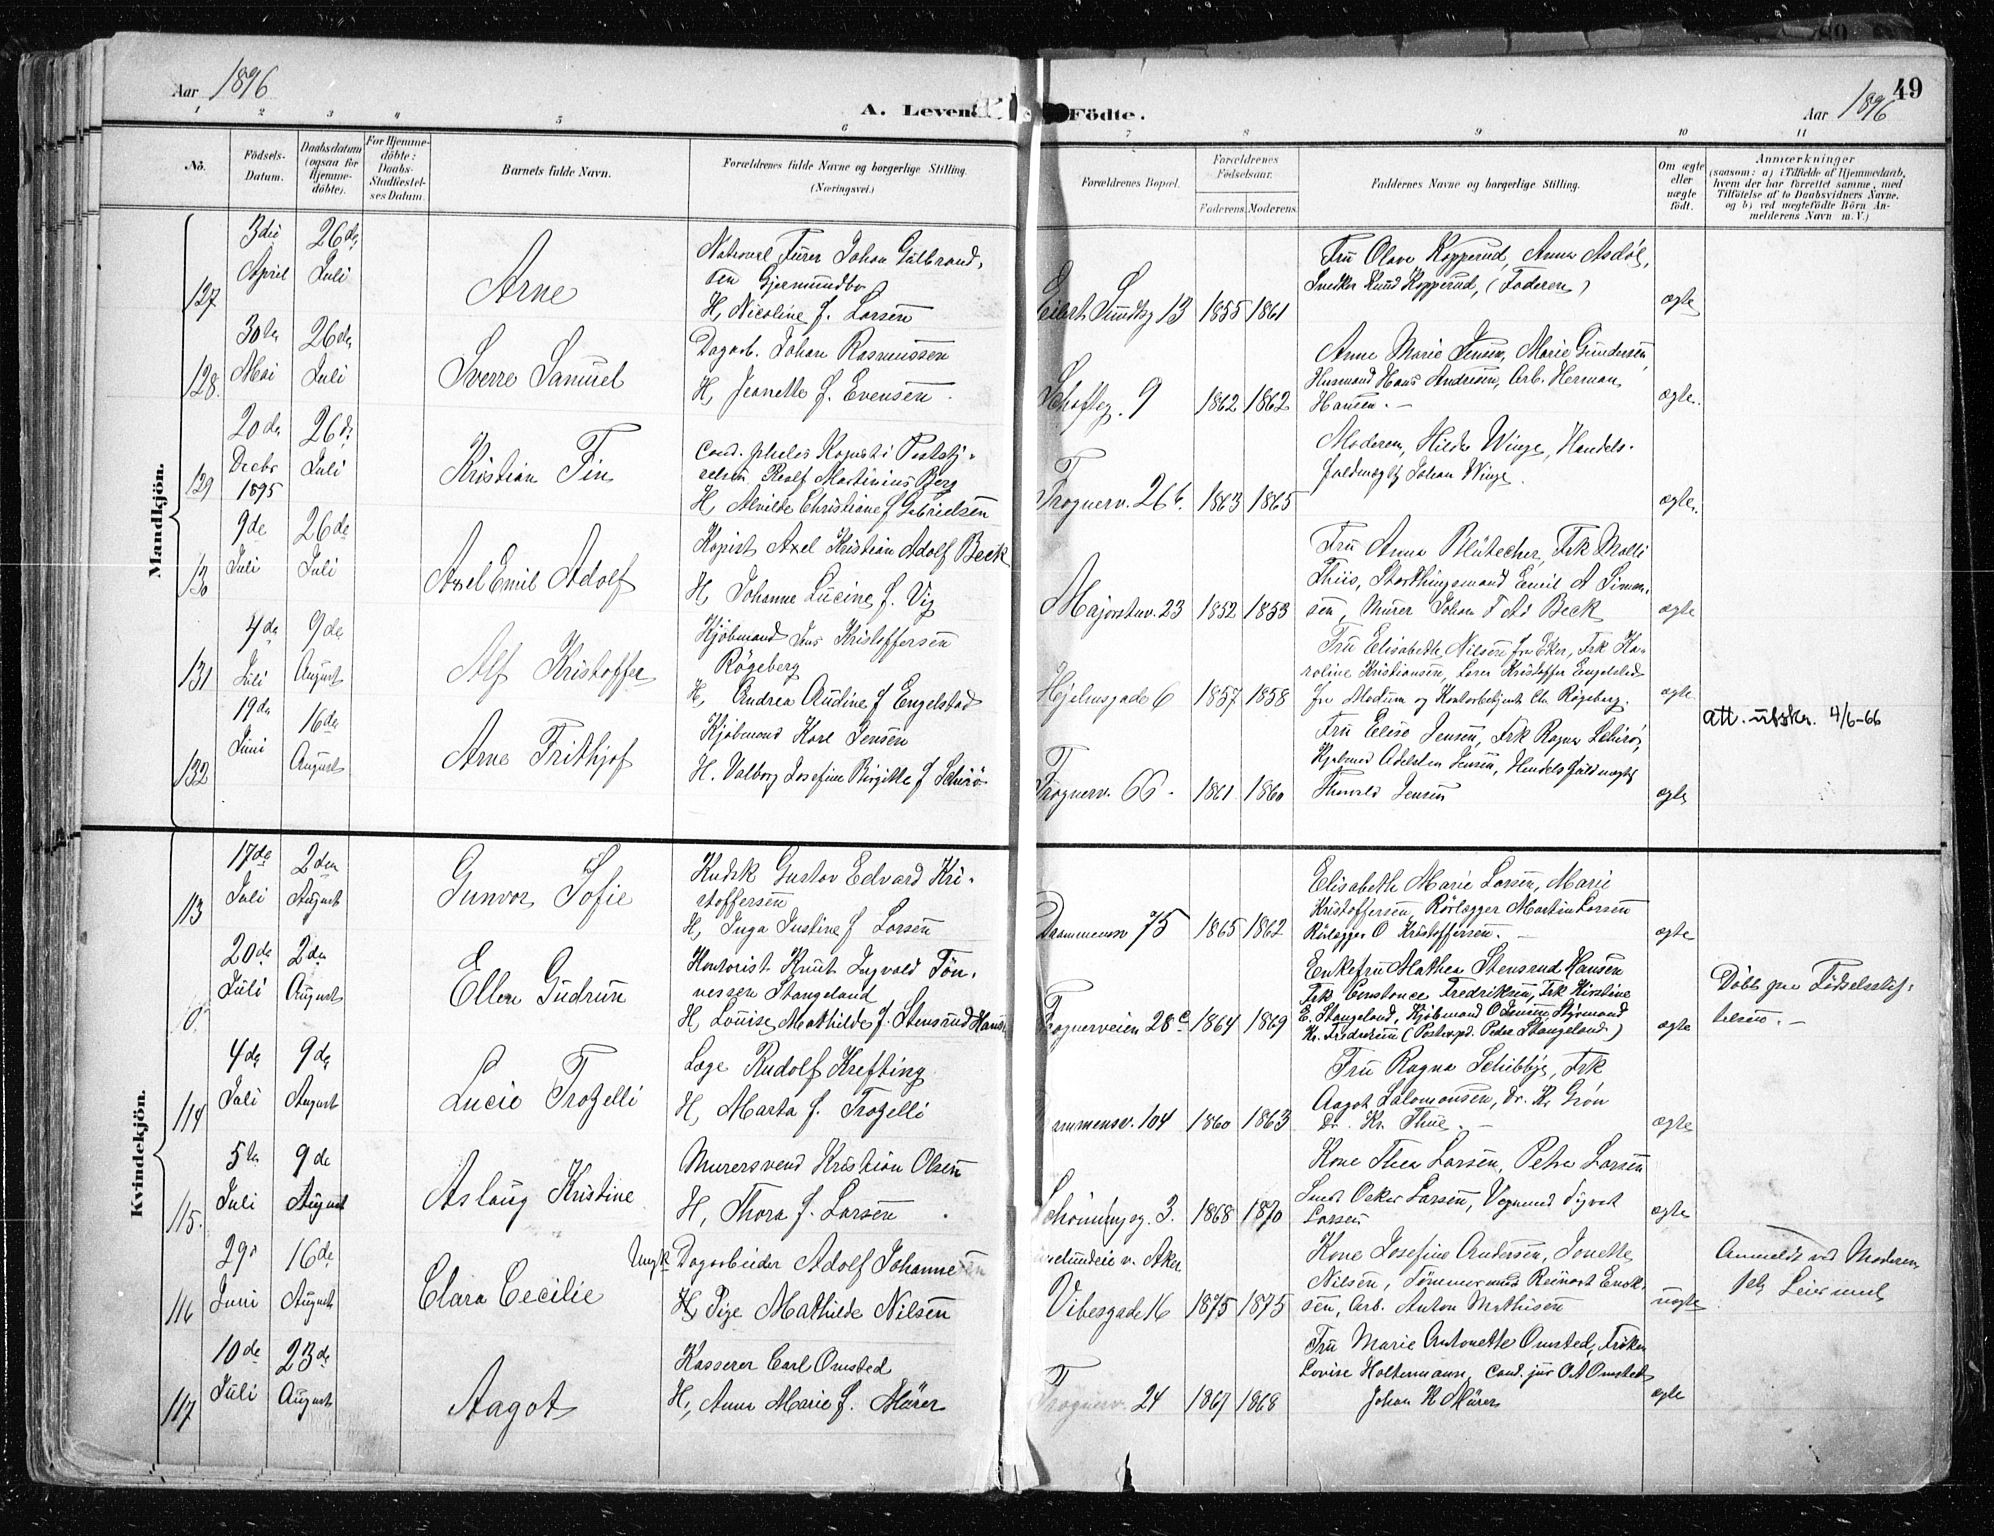 Aar 1896
A. Levende Födte.
Aar 1896
49
1 2 3 4 5 6 7 8 9 10 11
No.
Födsels-Datum.
Daabsdatum (ogsaa for Hjemmedöbte).
For Hjemmedöbte: Daabs-Stadfæstelses Datum.
Barnets fulde Navn.
Forældrenes fulde Navne og borgerlige Stilling. (Næringsvei.)
Forældrenes Bopæl.
Forældrenes Födselsaar.
Faderens. Moderens.
Faddernes Navne og borgerlige Stilling.
Om ægte eller uægte födt.
Anmærkninger
(saasom: a) i Tilfælde af Hjemmedaab,
hvem der har forrettet samme, med
Tilföielse af to Daabsvidners Navne.
og b) ved uægtefödte Börn An-
melderens Navn m. V.)
Mandkjön.
127
3die April
26de Juli
Arne
Johan Gulbrand-
sen Gjermundbo
H, Nicoline f. Larsen
Eilert Sundtsg 13
1855 1861
Fru Olava Kopperud, Anna Asdöl,
Snedker Knud Kopperud, (Faderen)
ægte
128.
30te Mai
26de Juli
Sverre Samuel
Dagarb. Johan Rasmussen
H, Jeanette f. Evensen.
9
1862 1862
Anne Marie Jensen, Marie Gundersen,
Husmand Hans Andresen, Arb. Herman
Hansen. —
ægte.
129
20de Decbr 1895
26de Juli
Kristian Fin
Rolf Martinius Berg
H, Alvilde Christiane f Gabrielsen
Frognerv. 26b.
1863 1865
Moderen, Hilda Winge, Handels-
fuldmægtg Johan Winge.
ægte.
130
9de Juli
26de Juli
Axel Emil Adolf
Kopist Axel Kristian Adolf Beck
H, Johanne Lucine f. Vig
Majorstuv. 23
1852 1853
Fru Anna Blütecher, Frk Molli
Thiis, Storthingsmand Emil A Simon-
sen, Murer Johan F Ad Beck
ægte
131
4de Juli
9de August
Alf Kristoffer
Kjöbmand Jens Kristoffersen
Rögeberg
H, Andrea Audine f Engelstad
Hjelmsgade 6
1857 1858
Fru Elisabeth Nilsen fra Eker, Frk Ka-
roline Kristiansen, Lærer Kristoffer Engelstad
fra Modum og Kontorbetjent Chr. Rögeberg.
ægte
att. utskr. 4/6-66
132
19de Juni
16de August
Arne Frithjof
Kjöbmand Karl Jensen
H. Valborg Josefine Birgitte f Schirö
Frognerv. 66.
1861 1860
Fru Elise Jensen, Frk Ragna Schirö,
Kjöbmd Adelsten Jensen, Handelsfuldmægtg
Thorvald Jensen
ægte
Kvindekjön.
113
17de Juli
2den August
Gunvor Sofie
Kudsk Gustav Edvard Kri-
stoffersen
H, Inga Justine f Larsen
Drammensv 75
1865 1862
Elisabeth Marie Larsen, Marie
Kristoffersen, Rörlægger Martin Larsen
Rörlægger O Kristoffersen. —
ægte
0.
20de Juli
2den August
Ellen Gudrun
Kontorist Knut Ingvald Tön-
nessen Stangeland
H, Louise Mathilde f. Stensrud Hansen
Frognerveien 28c
1864 1869
Enkefru Mathea Stensrud Hansen
Frk Constance Fredriksen, Frk Kirstine
E. Stangeland, Kjöbmand O Jensen, Styrmand
Kr. Fredriksen (Postexpd. Peder Stangeland)
ægte
Döbt paa Födselsstif-
telsen. —
114
4de Juli
9de August
Lucie Trozelli
Læge Rudolf Krefting
H, Marta f. Trozelli
104
1860 1863
Fru Ragna Schibbye, Frk
Aagot Salomonsen, Dr. Kr Grön
Dr. Kr. Thue. —
ægte
115.
5te Juli
9de August
Aslaug Kristine
Murersvend Kristian Olsen
H, Thora f. Larsen.
Schöningsg. 3.
1868 1870
Kone Thea Larsen, Petra Larsen
Oskar Larsen, Vognmand Sigvat
Larsen
ægte
116
29de Juni
16de August
Clara Cecilie
Ungk Dagarbeider Adolf Johannesen
Pige Mathilde Nilsen
v. Aker
Vibesgade 16
1875 1875
Kone Josefine Andersen, Jonette
Nilsen, Tömmermand Reinart Enok-
sen, Arb. Anton Mathisen
uægte
Anmeldt ved Moderen
1ste Leiermaal
117
10de Juli
23de August
Aagot
Kasserer Carl Omsted
H, Anna Marie f. Mürer
Frognerv. 24
1867 1868
Fru Marie Antonette Omsted, Fröken
Lovise Holtermann, cand. jur O A Omsted
Johan K Mürer
ægte